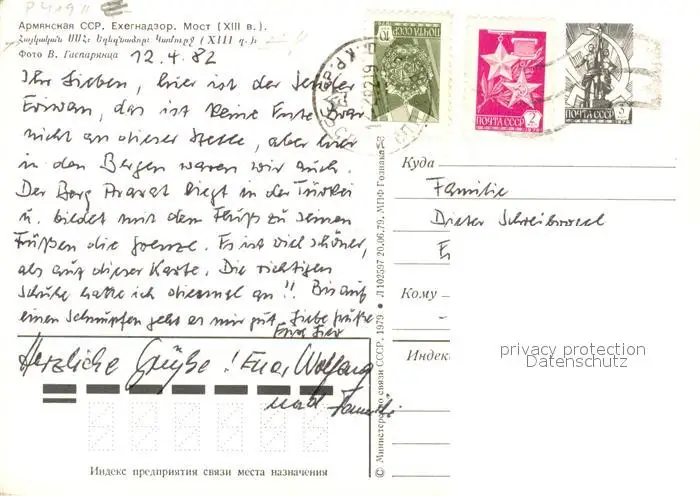 Армянская ССР. Ехегнадзор. Мост (XIII в.).
Հայկական ՍՍՀ։ Եղեգնաձոր։ Կամուրջ (XIII դ.)։
Фото В. Гаспарянца
12.4.82
Ihr Lieben, hier ist der Sender
Eriwan, das ist keine Ente. War
nicht an dieser Stelle, aber hier
in den Bergen waren wir auch.
Der Berg Ararat liegt in der Türkei
u. bildet mit dem Fluß zu seinen
Füßen die Grenze. Es ist viel schöner,
als auf dieser Karte. Die richtigen
Schuhe hatte ich diesmal an!! Bis auf
einen Schnupfen geht es mir gut. Liebe Grüße
Herzliche Grüße! Euer Wolfgang
und
Индекс предприятия связи места назначения
© Министерство связи СССР, 1979 • Л 102597 20.06.79. МПФ Гознака
ПОЧТА СССР
10
ПОЧТА СССР
2
1976
ПОЧТА СССР
3
1976
Куда
Familie
Dieter
E
Кому
Индекс
privacy protection
Datenschutz